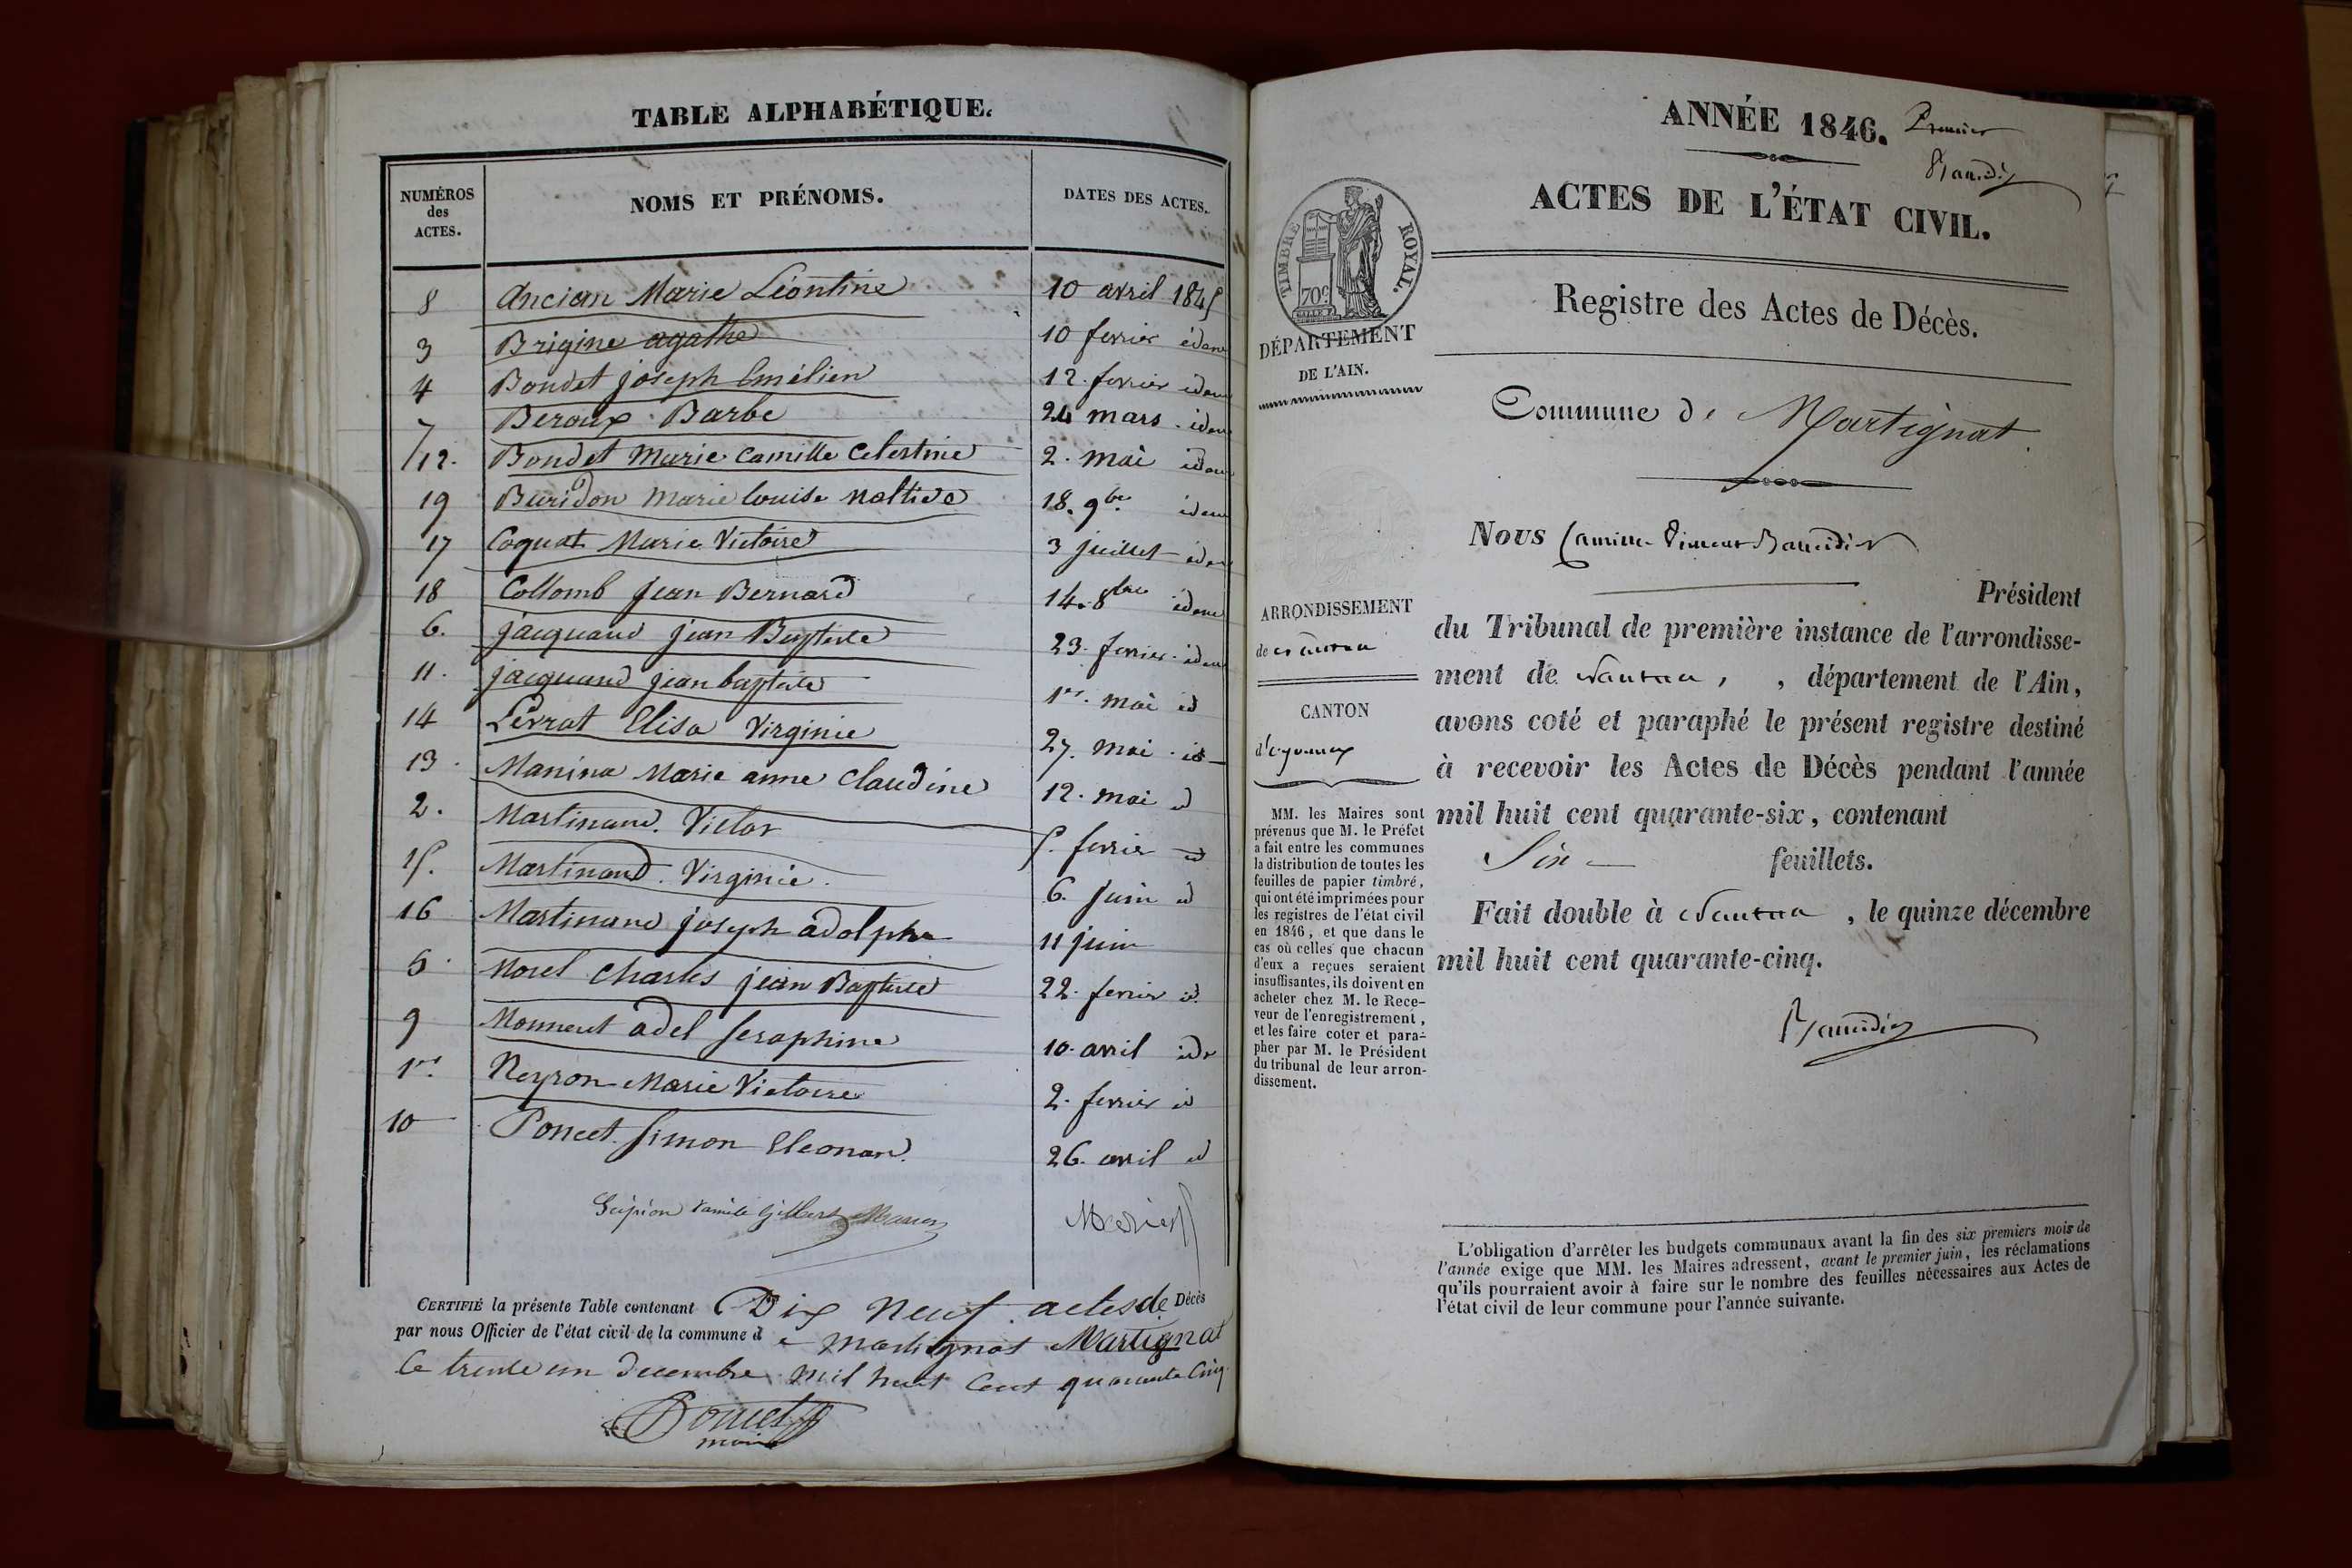 TABLE ALPHABÉTIQUE.
NUMÉROS des ACTES. NOMS ET PRÉNOMS. DATES DES ACTES.
8 Ancian Marie Léontine 10 avril 1845
3 Brigine agathe 10 fevrier idem
4 Boudet joseph Emélien 12. fevrier idem
7 Beroux Barbe 24 mars idem
12. Boudet Marie Camille Celestine 2. mai idem
19 Buridon Marie louise 18. 9bre idem
17 Coquat Marie Victoire 3 juillet idem
18 Collomb jean Bernard 14. 8bre idem
6. jacquand jean Baptiste 23. fevrier idem
11. jacquand jean baptiste 1er. mai id
14 Levrat Elisa Virginie 27. mai id
13. Manina Marie anne Claudine 12. mai id
2. Martinand. Victor 5. fevrier id
15. Martinand. Virginie. 6. juin id
16 Martinand joseph adolphe 11 juin
5. Morel Charles jean Baptiste 22. fevrier id.
9 Monneret adel seraphine 10. avril id
1er. Neyron Marie Victoire 2. fevrier id
10 Poncet. Simon Eleonard. 26. avril id
CERTIFIÉ la présente Table contenant Dix Neuf. actes de Décès
par nous Officier de l'état civil de la commune d e Martignat Martignat
le trente un decembre mil huit Cent quarante Cinq.
maire
ANNÉE 1846. Premier
Baudin
ACTES DE L'ÉTAT CIVIL.
TIMBRE ROYAL.
70c
Registre des Actes de Décès.
DÉPARTEMENT
DE L'AIN.
Commune de Martignat.
Nous Camille
Président
ARRONDISSEMENT
de Nantua
CANTON
d'Oyonnax
du Tribunal de première instance de l'arrondisse-
ment de Nantua, , département de l'Ain,
avons coté et paraphé le présent registre destiné
à recevoir les Actes de Décès pendant l'année
mil huit cent quarante-six, contenant
Six feuillets.
Fait double à Nantua , le quinze décembre
mil huit cent quarante-cinq.
MM. les Maires sont
prévenus que M. le Préfet
a fait entre les communes
la distribution de toutes les
feuilles de papier timbré,
qui ont été imprimées pour
les registres de l'état civil
en 1846, et que dans le
cas où celles que chacun
d'eux a reçues seraient
insuffisantes, ils doivent en
acheter chez M. le Rece-
veur de l'enregistrement,
et les faire coter et para-
pher par M. le Président
du tribunal de leur arron-
dissement.
L'obligation d'arrêter les budgets communaux avant la fin des six premiers mois de
l'année exige que MM. les Maires adressent, avant le premier juin, les réclamations
qu'ils pourraient avoir à faire sur le nombre des feuilles nécessaires aux Actes de
l'état civil de leur commune pour l'année suivante.